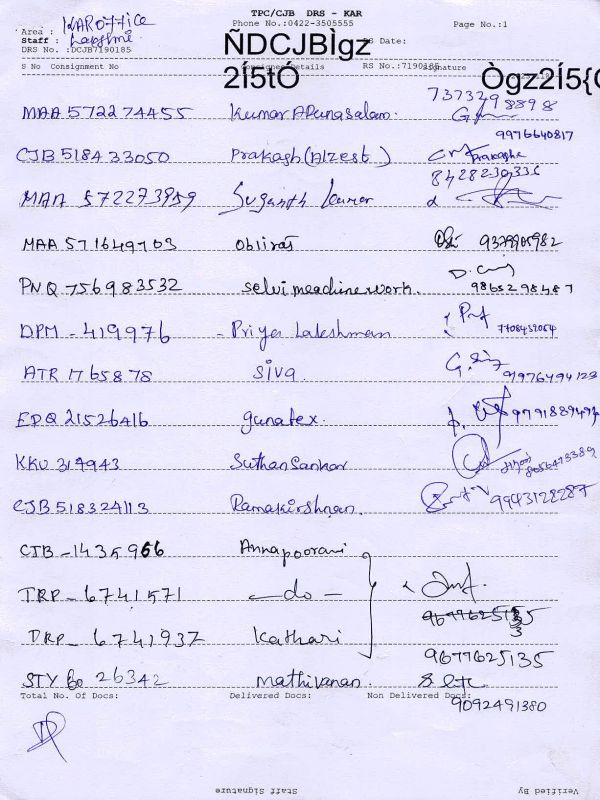 TPC/CJB DRS - KAR
Phone No.:0422-3505555 Page No.:1
Area : KAR OFFICE
Staff : Lakshmi
DRS No. :DCJB7190185 DRS Date:
ÑDCJBÌgz
S No Consignment No Consignee Details RS No.:7190185 Signature
2Í5tÓ Ògz2Í5{Ó
7373298898
MAA 572274455 Kumar Arunasalam.
9976640817
CJB 518433050 Prakash (Alzest) Prakash
8428239336
MAA 572273959 Suganth Kumar
MAA 571649703 Obliras 9379905982
PNQ 756983532 Selvi meachine work. 9865298487
DPM - 419976 - Priya Lakshman 7708439064
ATR 1765878 Siva. 9976494123
EDQ 21526416 gunatex.
KKU 314943 Suthan Sankar 8056473389
CJB 518324113 Ramakirshnan. 9943122287
CJB - 1435966 Annapoorani
TRP - 6741571 - do -
DRP - 6741937 Kathari
9677625135
STY 60 26342 mathivanan.
Total No. Of Docs: Delivered Docs: Non Delivered Docs:
9092491380
Staff Signature Verified By